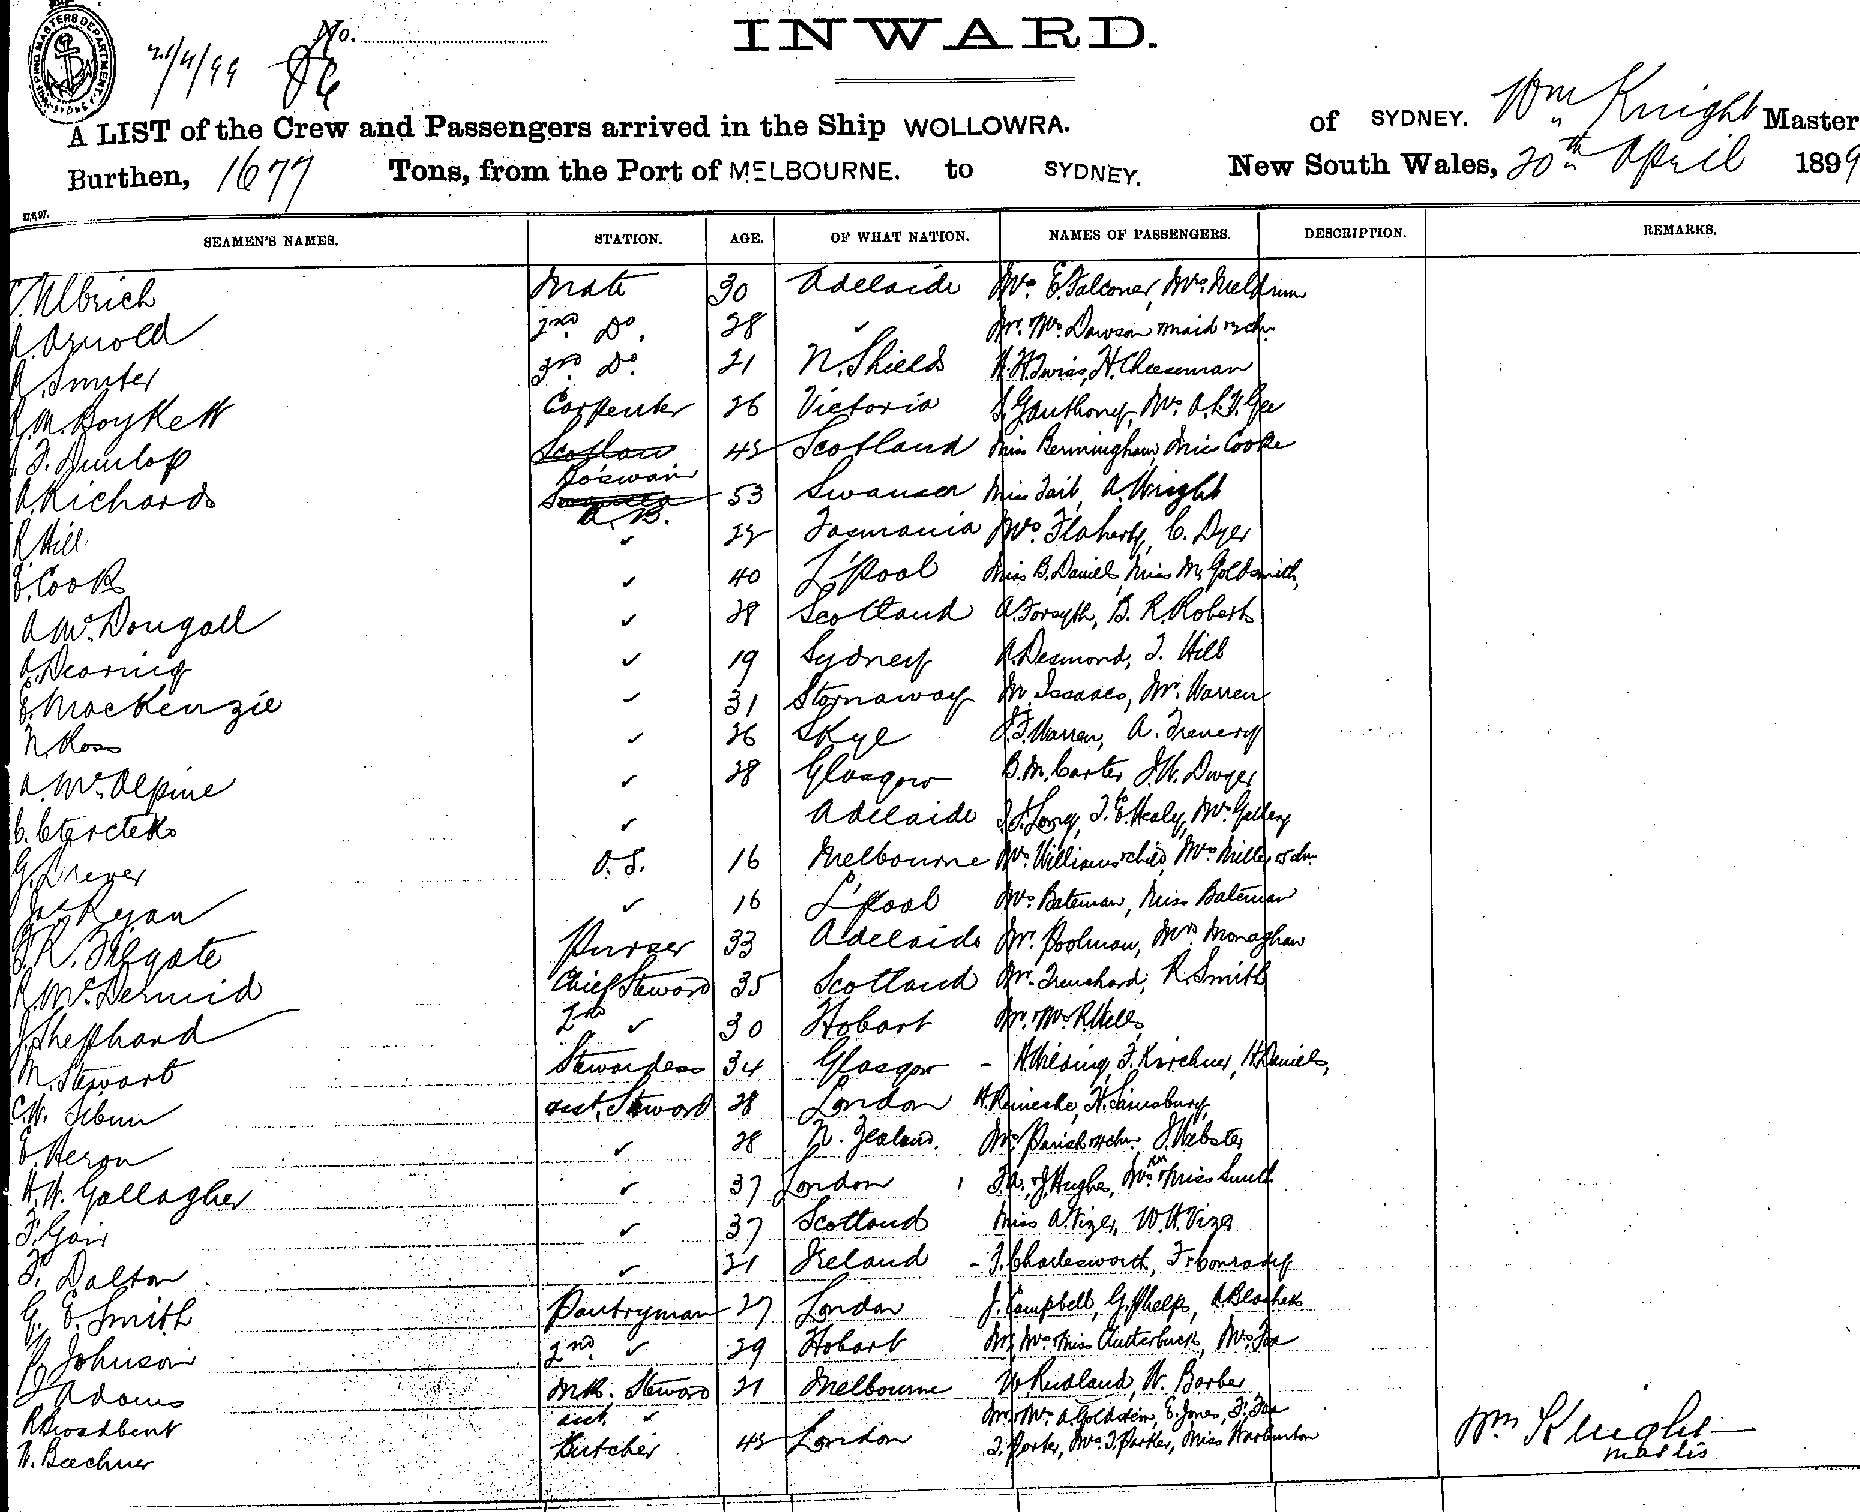 SHIPPING MASTERS DEPARTMENT
21/4/99 No.
INWARD.
A LIST of the Crew and Passengers arrived in the Ship WOLLOWRA. of SYDNEY. Wm Knight Master
Burthen, 1677 Tons, from the Port of MELBOURNE. to SYDNEY. New South Wales, 20th April 1899
SEAMEN'S NAMES. STATION. AGE. OF WHAT NATION. NAMES OF PASSENGERS. DESCRIPTION. REMARKS.
Ulbrich Mate 30 Adelaide Mrs E. Falconer, Mrs Meldrum
Arnold 2nd Do. 28 ✓ Mr. Mrs Dawson maid & ch.
3rd Do. 21 N. Shields H. Cheeseman
Carpenter 26 Victoria Mrs
Dunlop Scotland Bo'swain 45 Scotland Miss Bermingham, Miss Cooke
A. Richards A.B. 53 Swansea Miss Tait, A. Wright
R Hill ✓ Tasmania Mrs Flaherty, C. Dyer
Cook ✓ 40 L'pool Miss B. Daniel, Miss M. Goldsmith,
A McDougall ✓ 28 Scotland A. Forsyth, B. R. Roberts
Dearing ✓ 19 Sydney Desmond, T. Hill
E. MacKenzie ✓ 31 Stornaway M. Issaacs, Mr. Warren
N. Ross ✓ 26 Skye Warren, A. Trenery
A. McAlpine ✓ 28 Glasgow B. M. Carter, J. W. Dwyer
✓ Adelaide Long, T. E. Healy, Mrs
G. Drever O.S. 16 Melbourne Mrs Williams & child, Mrs Miller & ch.
Jas Ryan ✓ 16 L'pool Mrs Bateman, Miss Bateman
Filgate Purser 33 Adelaide Mr. Poolman, Mrs Monaghan
R McDermid Chief Steward 35 Scotland Mr. Trenchard, R. Smith
J. Shephard 2nd ✓ 30 Hobart Mr. Mrs
M. Stewart Stewardess 34 Glasgow - F. Kirchner, H Daniels,
C. H. Asst. Steward 28 London H. Reineche, H. Sainsbury,
E. Heron ✓ 28 N. Zealand. Mrs Parish & ch. J. Webster
H. H. Gallagher ✓ 37 London J. Hughes, Mrs & Miss Smith
F. Gair ✓ 37 Scotland Miss A. Vizer, W. H. Vizer
F. Dalton ✓ 21 Ireland - T. Charlesworth,
G. E. Smith Pantryman 27 London J. Campbell, G. Phelps,
Johnson 2nd ✓ 29 Hobart Mr, Mrs Miss Clutterbuck, Mrs Fox
Adams Mr. Steward 21 Melbourne W Rudland, W. Barber
R Broadbent asst. ✓ Mr. Mrs A Goldstein, E. Jones, F. Fox
W. Baechner Butcher 45 London T. Porter, Mrs T. Parker, Miss Warburton
Wm Knight
master